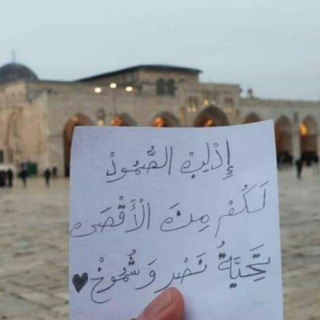 إِدْلِبْ الصُّمُودْ
لَكُمْ مِنَ الْأَقْصَى
تَحِيَّةُ نَصْرٍ وَشُمُوخْ ♥